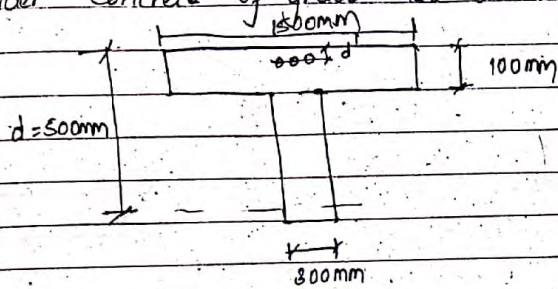 Concrete of
1500mm
d'
100mm
d=500mm
300mm